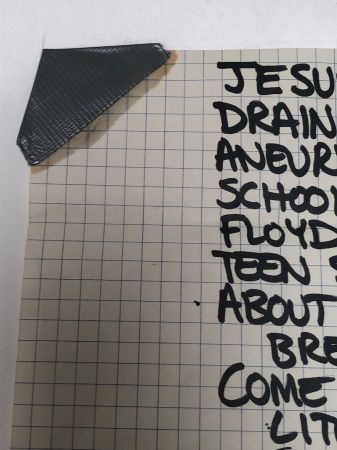 JESU
DRAIN
ANEUR
SCHOOL
FLOYD
TEEN S
ABOUT
BRE
COME
LIT